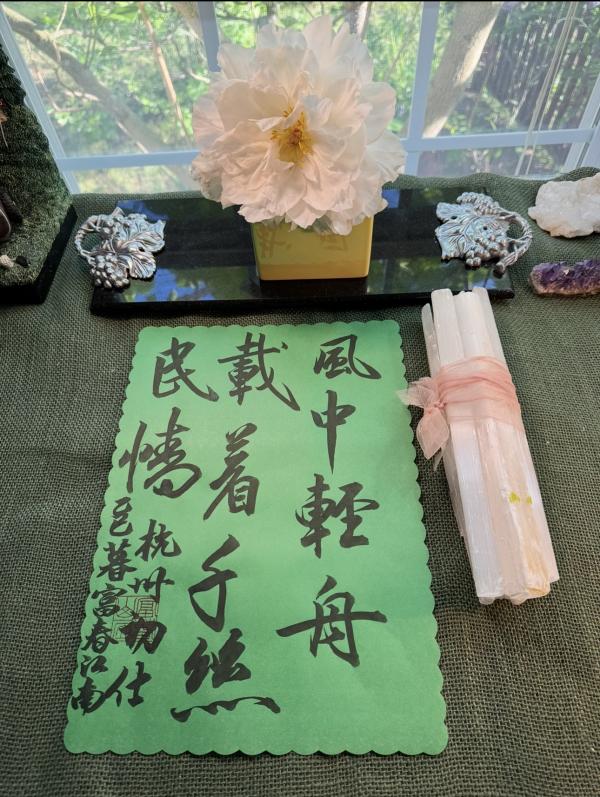 風中輕舟
載着千絲
民情
杭州切仕
暮富春江南